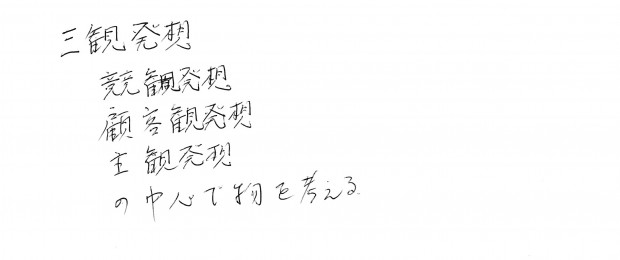 三観発想
競観発想
顧客観発想
主観発想
の中心で物を考える